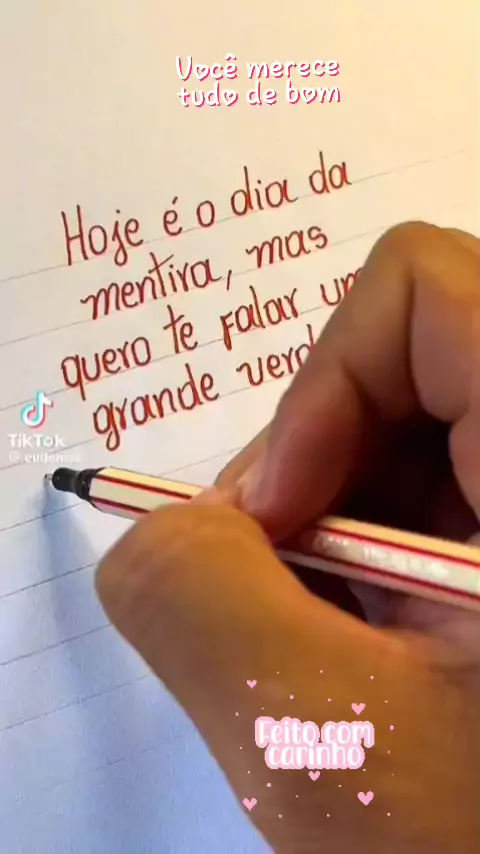 Você merece
tudo de bom
Hoje é o dia da
mentira, mas
quero te falar
grande
TikTok
Feito com
carinho